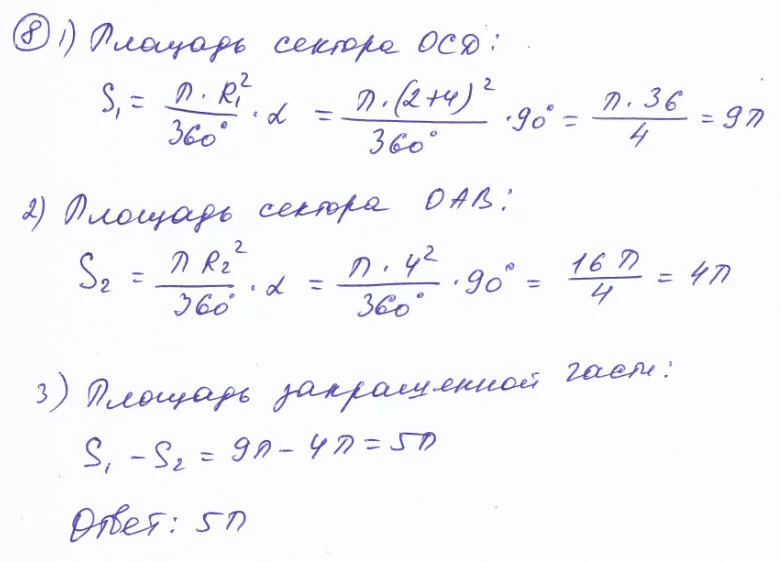 ⑧ 1) Площадь сектора OCD:
S₁ = (π · R₁²)/360° · α = (π · (2+4)²)/360° · 90° = (π · 36)/4 = 9π
2) Площадь сектора OAB:
S₂ = (π R₂²)/360° · α = (π · 4²)/360° · 90° = (16π)/4 = 4π
3) Площадь закрашенной части:
S₁ - S₂ = 9π - 4π = 5π
Ответ: 5π